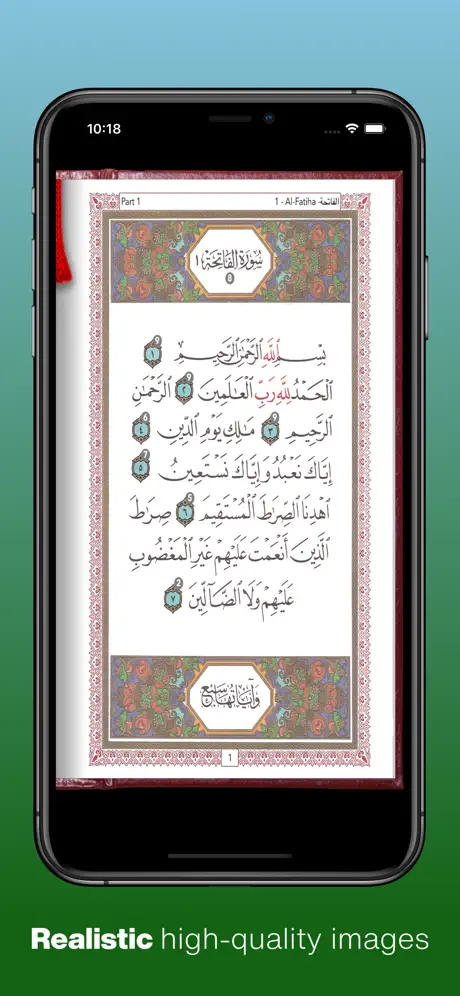 10:18
Part 1
1 - Al-Fatiha - الفاتحة
سُورَةُ الفَاتِحَة ١
٥
بِسْمِ ٱللَّهِ ٱلرَّحْمَٰنِ ٱلرَّحِيمِ ١
ٱلْحَمْدُ لِلَّهِ رَبِّ ٱلْعَٰلَمِينَ ٢ ٱلرَّحْمَٰنِ
ٱلرَّحِيمِ ٣ مَٰلِكِ يَوْمِ ٱلدِّينِ ٤
إِيَّاكَ نَعْبُدُ وَإِيَّاكَ نَسْتَعِينُ ٥
ٱهْدِنَا ٱلصِّرَٰطَ ٱلْمُسْتَقِيمَ ٦ صِرَٰطَ
ٱلَّذِينَ أَنْعَمْتَ عَلَيْهِمْ غَيْرِ ٱلْمَغْضُوبِ
عَلَيْهِمْ وَلَا ٱلضَّآلِّينَ ٧
وَآيَاتُهَا سَبْع
1
Realistic high-quality images